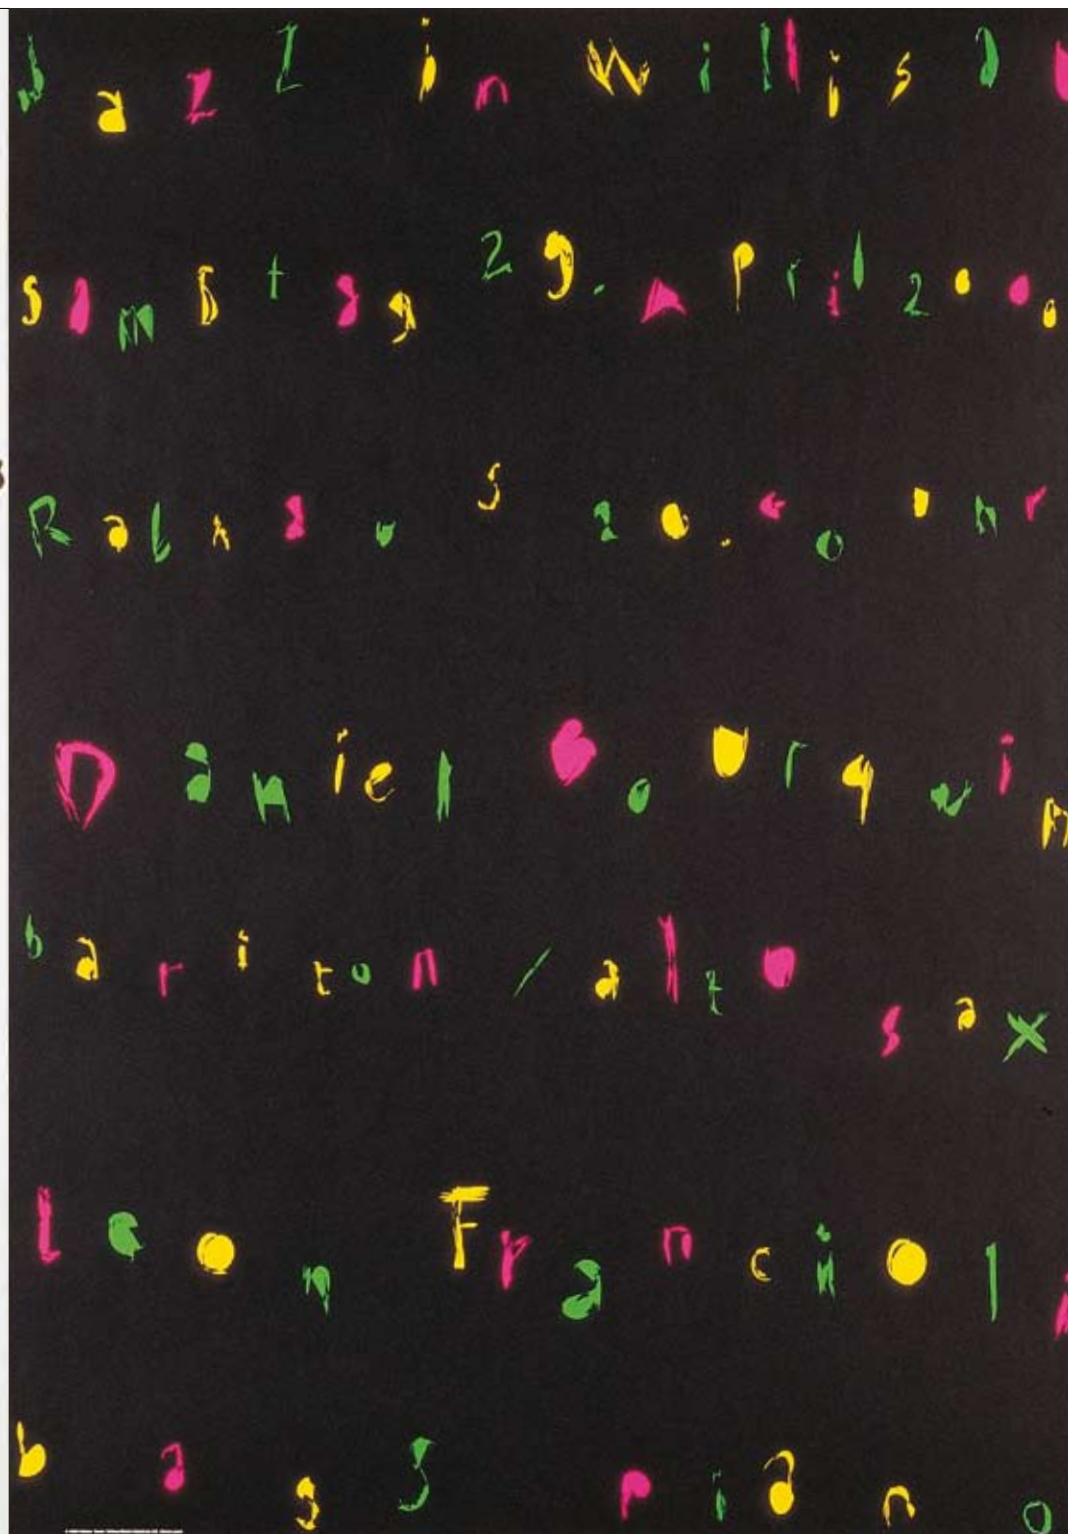 Jazz in Willisau
Samstag 29. April 2000
Rathaus 20.00 Uhr
Daniel Bourquin
bariton/alto sax
Leon Francioli
bass piano